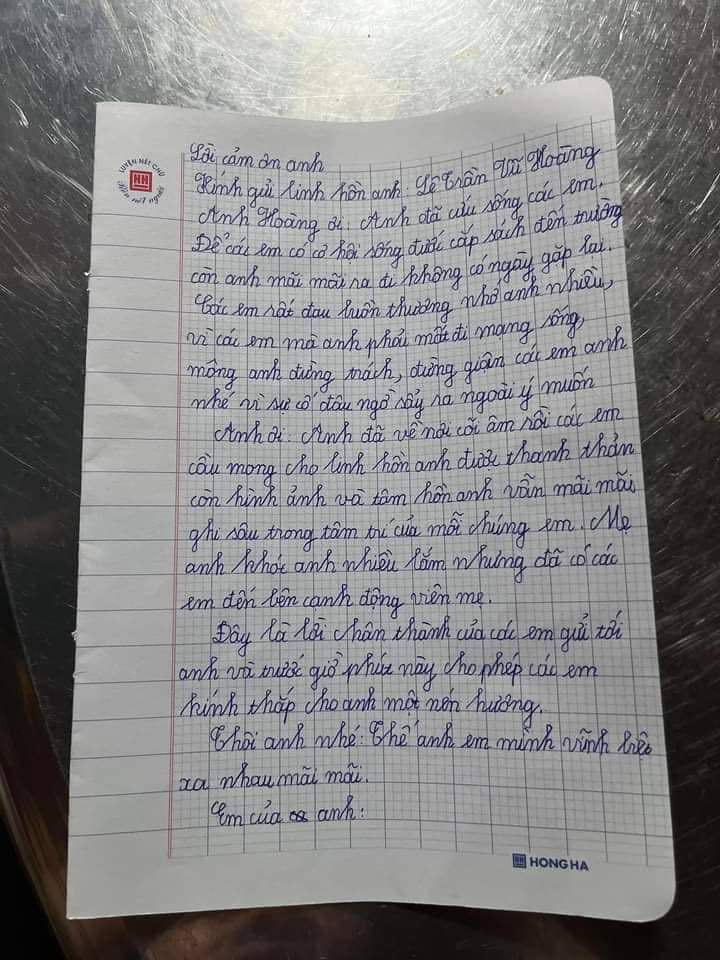 LUYỆN NÉT CHỮ
Rèn nết người
Lời cảm ơn anh
Kính gửi linh hồn anh: Lê Trần Vũ Hoàng
Anh Hoàng ơi: Anh đã cứu sống các em.
Để các em có cơ hội sống được cắp sách đến trường
còn anh mãi mãi ra đi không có ngày gặp lại.
Các em rất đau buồn thương nhớ anh nhiều,
vì các em mà anh phải mất đi mạng sống,
mông anh đừng trách, đừng giận các em anh
nhé vì sự cố đâu ngờ sảy ra ngoài ý muốn
Anh ơi: Anh đã về nơi cõi âm rồi các em
cầu mong cho linh hồn anh được thanh thản
còn hình ảnh và tâm hồn anh vẫn mãi mãi
ghi sâu trong tâm trí của mỗi chúng em. Mẹ
anh khóc anh nhiều lắm nhưng đã có các
em đến bên cạnh động viên mẹ.
Đây là lời chân thành của các em gửi tới
anh và trước giờ phút này cho phép các em
kính thắp cho anh một nén hương.
Thôi anh nhé: Thế anh em mình vĩnh biệt
xa nhau mãi mãi.
Em của anh:
HONG HA